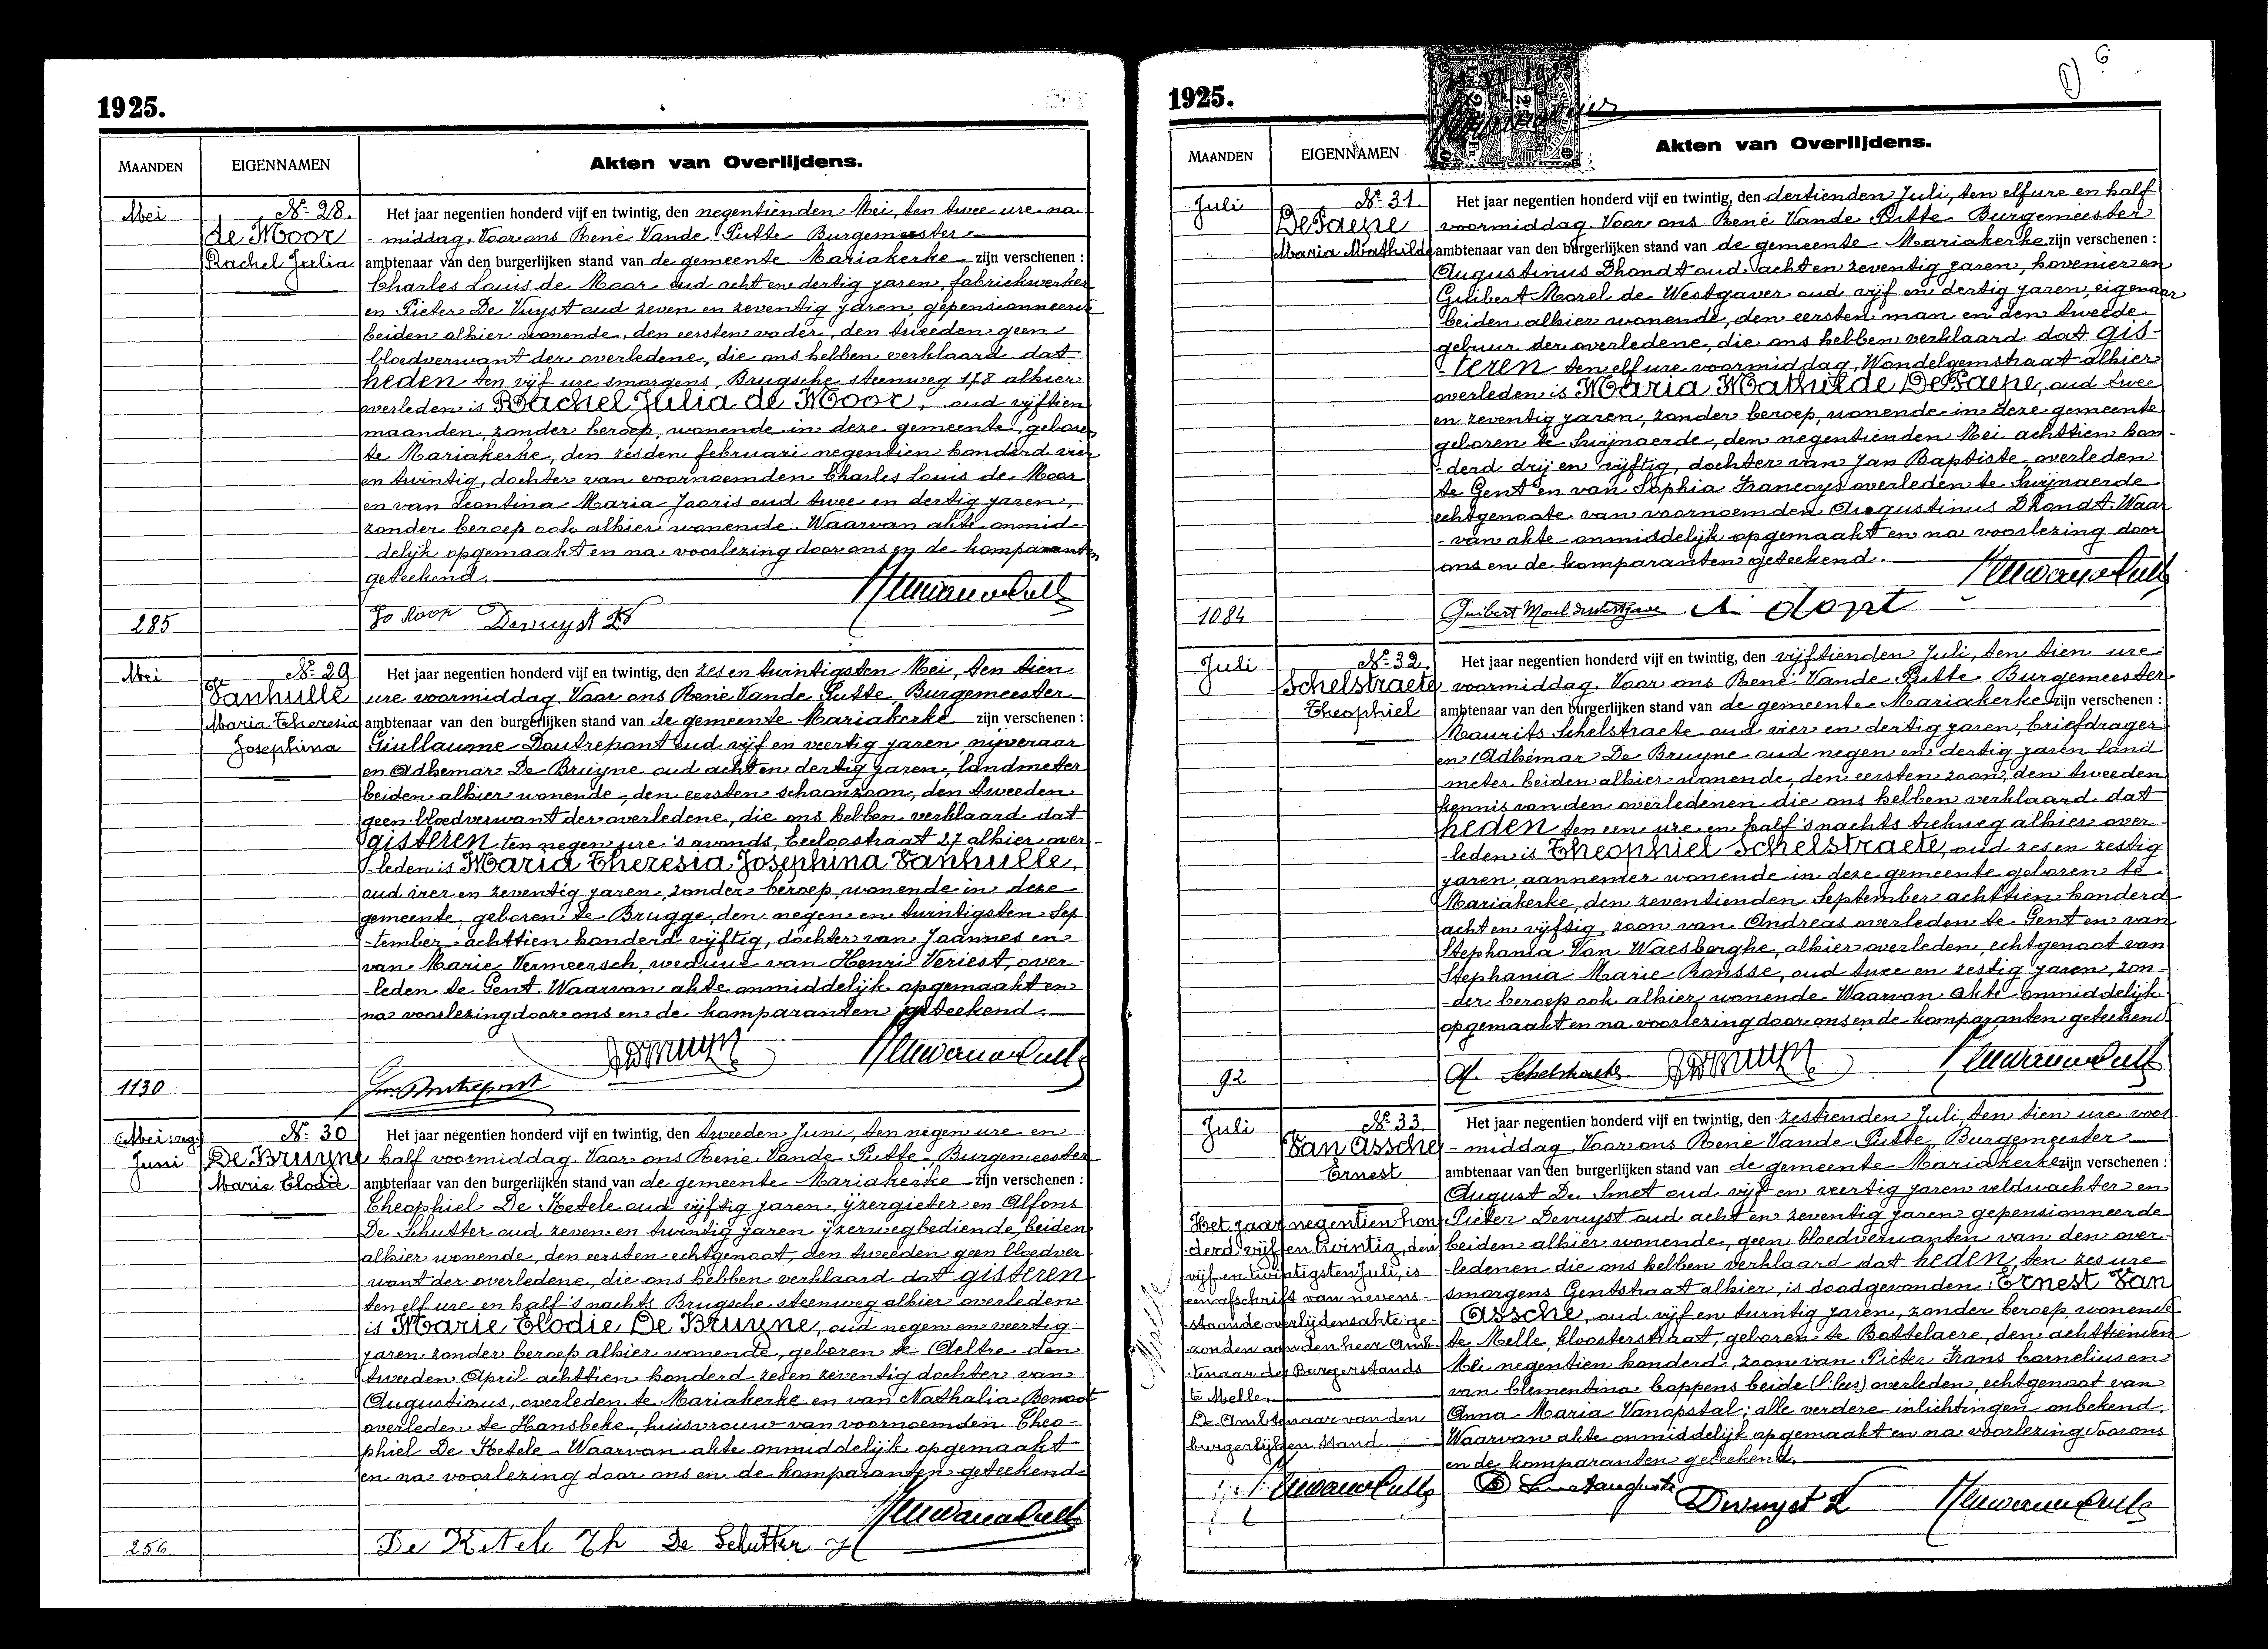 1925.
MAANDEN
EIGENNAMEN
Akten van Overlijdens.
Mei
N° 28.
de Moor
Rachel Julia
Het jaar negentien honderd vijf en twintig, den negentienden Mei, ten twee ure na
- middag. Voor ons René Vande Putte Burgemeester
ambtenaar van den burgerlijken stand van de gemeente Mariakerke zijn verschenen :
Charles Louis de Moor oud acht en dertig jaren, fabriekwerker
en Pieter De Vuyst oud zeven en zeventig jaren, gepensionneerde
beiden alhier wonende, den eersten vader, den tweeden geen
bloedverwant der overledene, die ons hebben verklaard dat
heden ten vijf ure smorgens, Brugsche steenweg 178 alhier
overleden is Rachel Julia de Moor, oud vijftien
maanden, zonder beroep, wonende in deze gemeente, geboren
te Mariakerke, den zesden februari negentien honderd vier
en twintig, dochter van voornoemden Charles Louis de Moor
en van Leontina Maria Jooris oud twee en dertig jaren,
zonder beroep ook alhier wonende. Waarvan akte onmid-
-delijk opgemaakt en na voorlezing door ons en de komparanten
geteekend.
Devuyst
285
Mei
N° 29
Vanhulle
Maria Theresia
Josephina
Het jaar negentien honderd vijf en twintig, den zes en twintigsten Mei, ten tien
ure voormiddag. Voor ons René Vande Putte Burgemeester
ambtenaar van den burgerlijken stand van de gemeente Mariakerke zijn verschenen :
Giullaume Doutrepont oud vijf en veertig jaren nijveraar
en Adhemar De Bruyne oud acht en dertig jaren, landmeter
beiden alhier wonende, den eersten schoonzoon, den tweeden
geen bloedverwant der overledene, die ons hebben verklaard dat
gisteren ten negen ure 's avonds, Eeclostraat 27 alhier over-
-leden is Maria Theresia Josephina Vanhulle,
oud vier en zeventig jaren, zonder beroep, wonende in deze
gemeente geboren te Brugge, den negen en twintigsten Sep
-tember achttien honderd vijftig, dochter van Joannes en
van Marie Vermeersch, weduwe van Henri Veriest, over-
-leden te Gent. Waarvan akte onmiddelijk opgemaakt en
na voorlezing door ons en de komparanten geteekend.
1130
Mei: neg
Juni
N° 30
De Bruyne
Marie Elodie
Het jaar negentien honderd vijf en twintig, den tweeden Juni, ten negen ure en
half voormiddag. Voor ons René Vande Putte, Burgemeester
ambtenaar van den burgerlijken stand van de gemeente Mariakerke zijn verschenen :
Theophiel De Ketele oud vijftig jaren, ijzergieter en Alfons
De Schutter oud zeven en twintig jaren ijzerwegbediende, beiden
alhier wonende, den eersten echtgenoot, den tweeden geen bloedver
want der overledene, die ons hebben verklaard dat gisteren
ten elf ure en half 's nachts Brugsche steenweg alhier overleden
is Marie Elodie De Bruyne, oud negen en veertig
jaren zonder beroep alhier wonende, geboren te Aeltre den
tweeden April achttien honderd zes en zeventig dochter van
Augustinus, overleden te Mariakerke en van Nathalia Benoot
overleden te Hansbeke, huisvrouw van voornoemden Theo-
phiel De Ketele. Waarvan akte onmiddelijk opgemaakt
en na voorlezing door ons en de komparanten geteekend
De Ketele Th De Schutter
256
6
1925.
MAANDEN
EIGENNAMEN
Akten van Overlijdens.
Juli
N° 31.
DePaepe
Maria Mathilde
Het jaar negentien honderd vijf en twintig, den dertienden Juli, ten elf ure en half
voormiddag. Voor ons René Vande Putte Burgemeester
ambtenaar van den burgerlijken stand van de gemeente Mariakerke zijn verschenen :
Augustinus Dhondt oud acht en zeventig jaren, hovenier en
Guibert Morel de Westgaver oud vijf en dertig jaren, eigenaar
beiden alhier wonende, den eersten man en den tweede
gebuur der overledene, die ons hebben verklaard dat gis-
-teren ten elf ure voormiddag, Wondelgemstraat alhier
overleden is Maria Mathilde DePaepe, oud twee
en zeventig jaren, zonder beroep, wonende in deze gemeente
geboren te Swijnaerde, den negentienden Mei achttien hon-
-derd drij en vijftig, dochter van Jan Baptiste overleden
te Gent en van Sophia Francoys overleden te Swijnaerde
echtgenoote van voornoemden Augustinus Dhondt. Waar
-van akte onmiddelijk opgemaakt en na voorlezing door
ons en de komparanten geteekend.
1084
Juli
N° 32.
Schelstraete
Theophiel
Het jaar negentien honderd vijf en twintig, den vijftienden Juli, ten tien ure
voormiddag. Voor ons René Vande Putte Burgemeester
ambtenaar van den burgerlijken stand van de gemeente Mariakerke zijn verschenen :
Maurits Schelstraete oud vier en dertig jaren, briefdrager
en Adhémar De Bruyne oud negen en dertig jaren land
meter beiden alhier wonende, den eersten zoon, den tweeden
kennis van den overledenen die ons hebben verklaard dat
heden ten een ure en half 's nachts trekweg alhier over-
-leden is Theophiel Schelstraete, oud zes en zestig
jaren, aannemer wonende in deze gemeente geboren te
Mariakerke, den zeventienden September achttien honderd
acht en vijftig, zoon van Andreas overleden te Gent en van
Stephania Van Waesberghe, alhier overleden, echtgenoot van
Stephania Marie Ronsse, oud twee en zestig jaren, zon-
-der beroep ook alhier wonende. Waarvan akte onmiddelijk
opgemaakt en na voorlezing door ons en de komparanten geteekend
Schelstraete
92
Juli
N° 33.
Van Assche
Ernest
Het jaar negentien honderd vijf en twintig, den zestienden Juli, ten tien ure voor
- middag. Voor ons René Vande Putte, Burgemeester
ambtenaar van den burgerlijken stand van de gemeente Mariakerke zijn verschenen :
August De Smet oud vijf en veertig jaren veldwachter en
Pieter Devuyst oud acht en zeventig jaren gepensionneerde
beiden alhier wonende, geen bloedverwanten van den over-
-ledenen die ons hebben verklaard dat heden, ten zes ure
smorgens Gentstraat alhier, is doodgevonden: Ernest Van
Assche, oud vijf en twintig jaren, zonder beroep, wonende
te Melle, kloosterstraat, geboren te Bottelaere, den achttienden
Mei negentien honderd, zoon van Pieter Frans Cornelius en
van Clementina Coppens beide overleden, echtgenoot van
Anna Maria Vanopstal; alle verdere inlichtingen onbekend.
Waarvan akte onmiddelijk opgemaakt en na voorlezing door ons
en de komparanten geteekend.
Het jaar negentien hon
derd vijf en twintig, den
vijf en twintigsten Juli, is
een afschrift van nevens-
staande overlijdensakte ge-
zonden aan den heer Amb-
tenaar des Burgerstands
te Melle.
De Ambtenaar van den
burgerlijken stand.
Devuyst